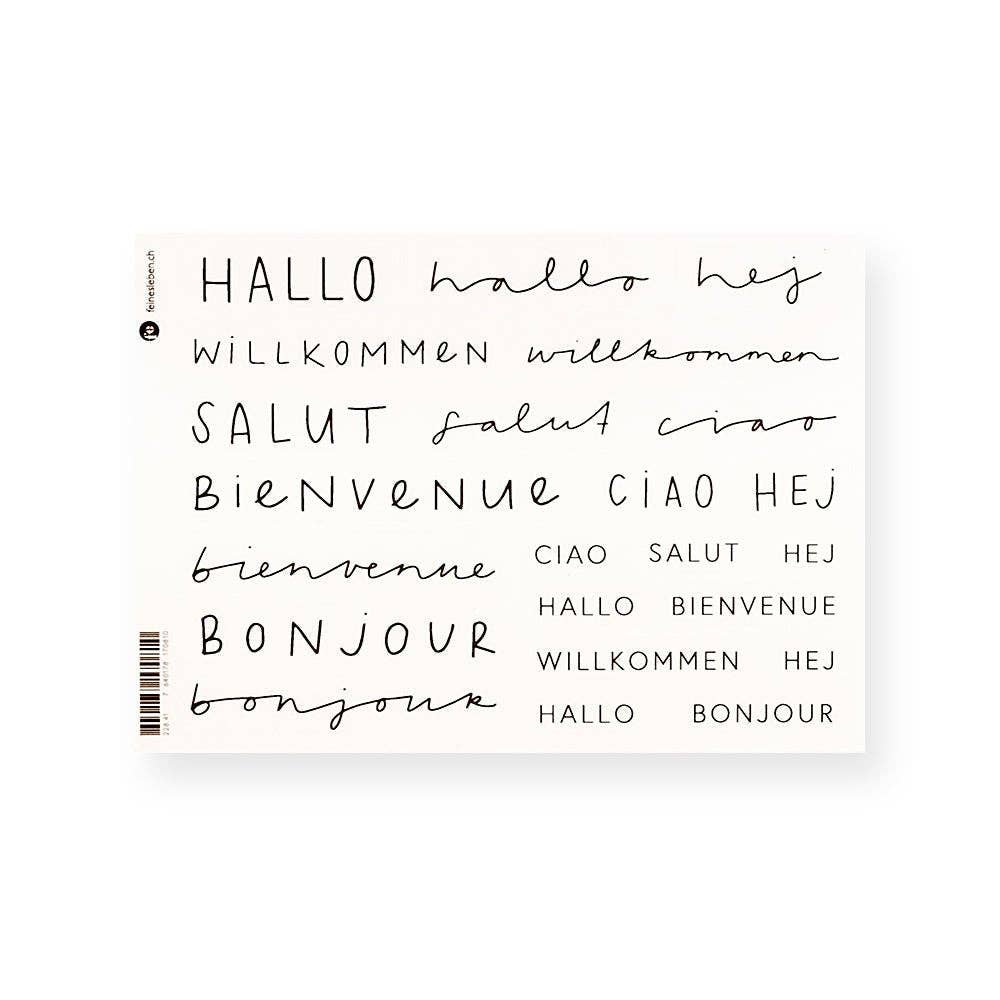 feinesleben.ch
HALLO hallo hej
WiLLKOMMeN willkommen
SALUT salut ciao
BieNVeNUe CiAO HEj
bienvenue
CIAO SALUT HEJ
HALLO BIENVENUE
BONjOUR
WILLKOMMEN HEJ
bonjour
HALLO BONJOUR